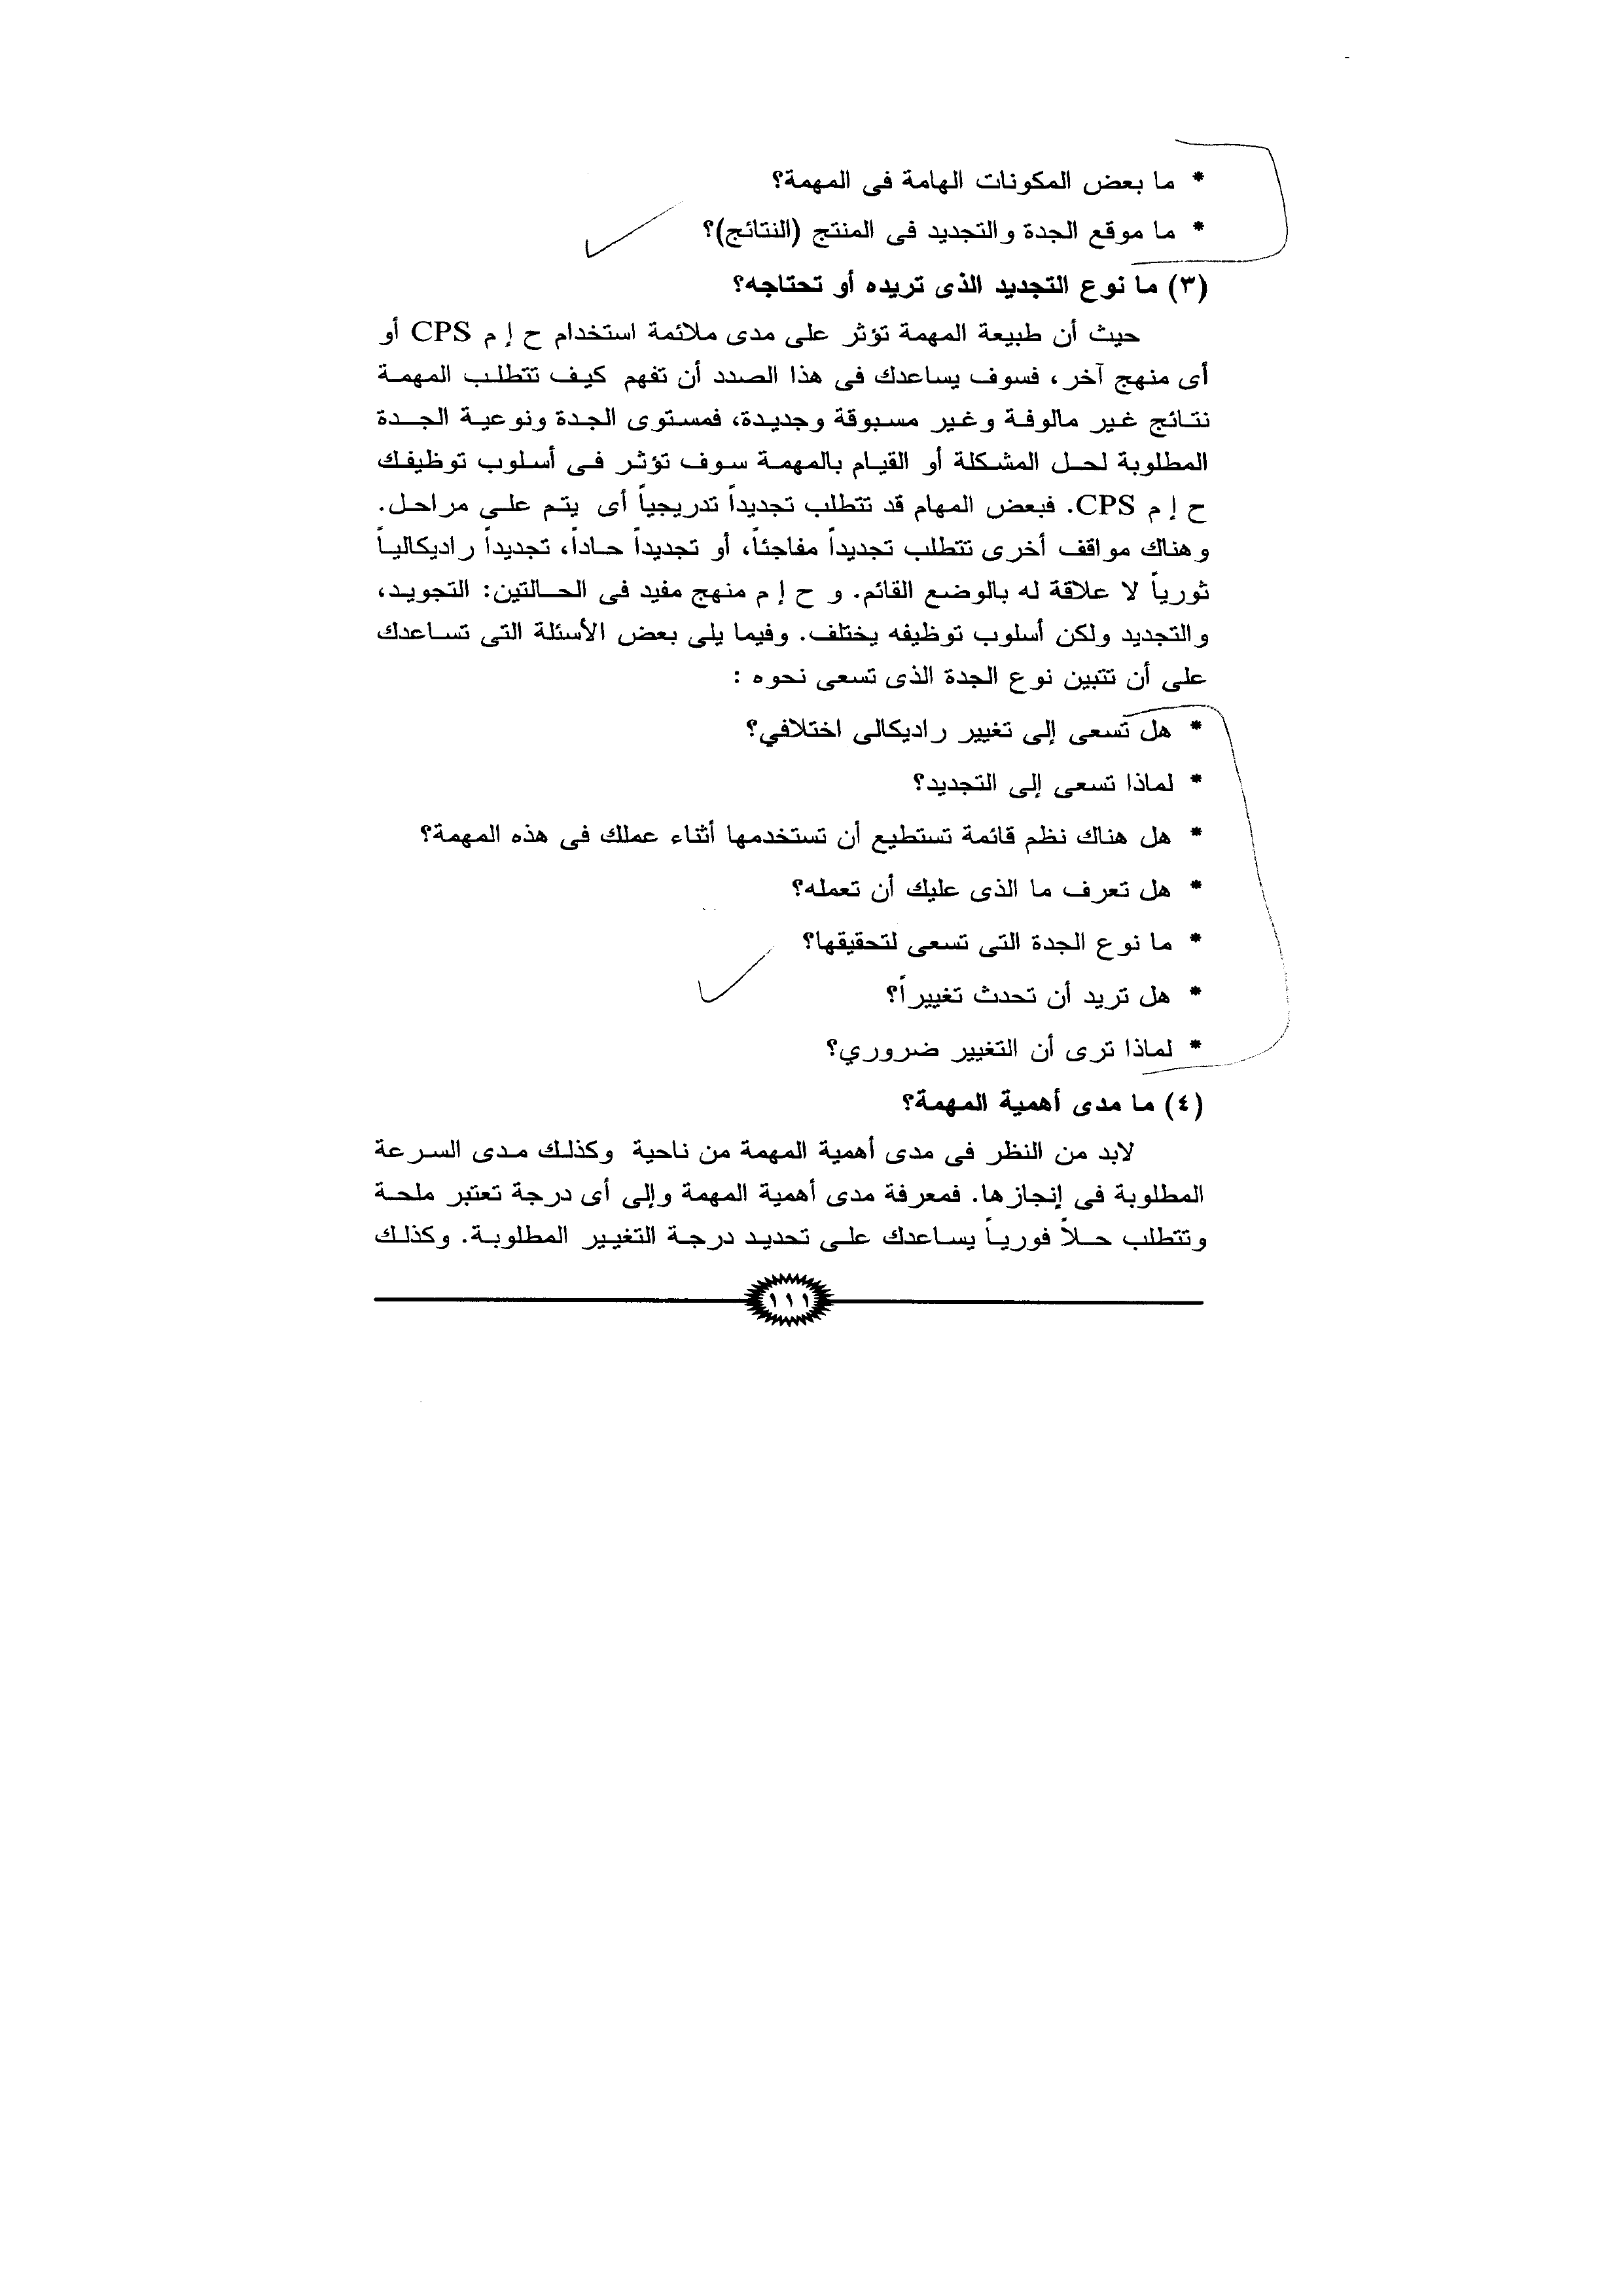 * ما بعض المكونات الهامة فى المهمة؟
* ما موقع الجدة والتجديد فى المنتج (النتائج)؟
(٣) ما نوع التجديد الذى تريده أو تحتاجه؟
حيث أن طبيعة المهمة تؤثر على مدى ملائمة استخدام ح إ م CPS أو
أى منهج آخر، فسوف يساعدك فى هذا الصدد أن تفهم كيف تتطلب المهمة
نتائج غير مالوفة وغير مسبوقة وجديدة، فمستوى الجدة ونوعية الجدة
المطلوبة لحل المشكلة أو القيام بالمهمة سوف تؤثر فى أسلوب توظيفك
ح إ م CPS. فبعض المهام قد تتطلب تجديداً تدريجياً أى يتم على مراحل.
وهناك مواقف أخرى تتطلب تجديداً مفاجئاً، أو تجديداً حاداً، تجديداً راديكالياً
ثورياً لا علاقة له بالوضع القائم. و ح إ م منهج مفيد فى الحالتين: التجويد،
والتجديد ولكن أسلوب توظيفه يختلف. وفيما يلى بعض الأسئلة التى تساعدك
على أن تتبين نوع الجدة الذى تسعى نحوه :
* هل تسعى إلى تغيير راديكالى اختلافي؟
* لماذا تسعى إلى التجديد؟
* هل هناك نظم قائمة تستطيع أن تستخدمها أثناء عملك فى هذه المهمة؟
* هل تعرف ما الذى عليك أن تعمله؟
* ما نوع الجدة التى تسعى لتحقيقها؟
* هل تريد أن تحدث تغييراً؟
* لماذا ترى أن التغيير ضروري؟
(٤) ما مدى أهمية المهمة؟
لابد من النظر فى مدى أهمية المهمة من ناحية وكذلك مدى السرعة
المطلوبة فى إنجازها. فمعرفة مدى أهمية المهمة وإلى أى درجة تعتبر ملحة
وتتطلب حلاً فورياً يساعدك على تحديد درجة التغيير المطلوبة. وكذلك
١١١